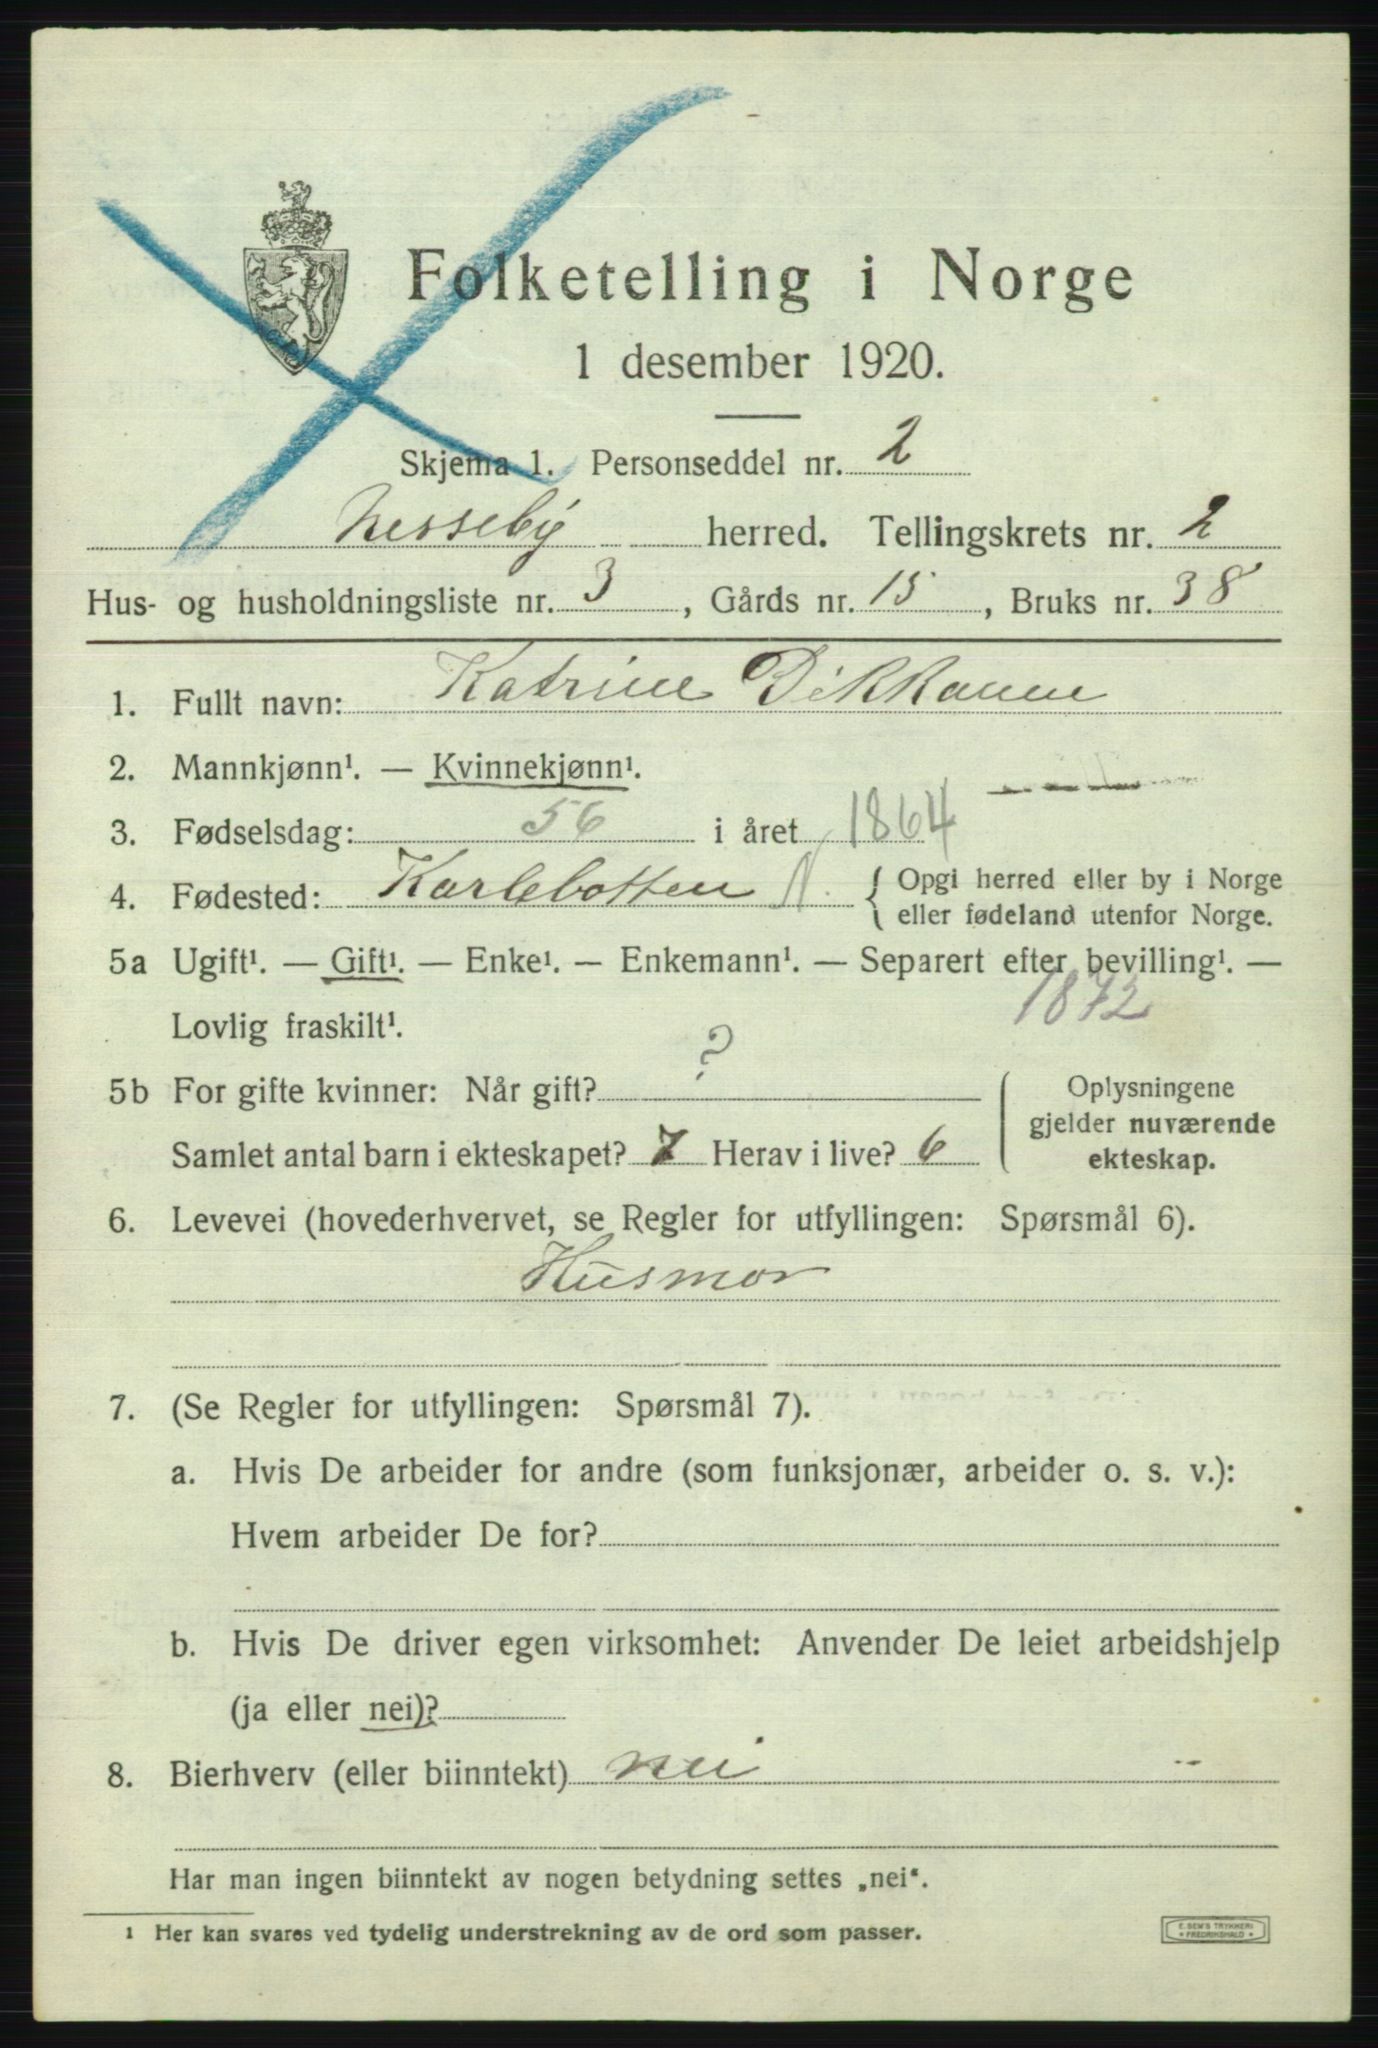 Folketelling i Norge
1 desember 1920.
Skjema 1. Personseddel nr. 2
Nesseby herred. Tellingskrets nr. 2
Hus- og husholdningsliste nr. 3, Gårds nr. 15, Bruks nr. 38
1. Fullt navn: Katrine Dikkanen
2. Mannkjønn¹. — Kvinnekjønn¹.
3. Fødselsdag: 56 i året 1864
4. Fødested: Karlebotten N. { Opgi herred eller by i Norge
eller fødeland utenfor Norge.
5a Ugift¹. — Gift¹. — Enke¹. — Enkemann¹. — Separert efter bevilling¹. —
Lovlig fraskilt¹. 1872
5b For gifte kvinner: Når gift? ? Oplysningene
gjelder nuværende
Samlet antal barn i ekteskapet? 7 Herav i live? 6 ekteskap.
6. Levevei (hovederhvervet, se Regler for utfyllingen: Spørsmål 6).
Husmor
7. (Se Regler for utfyllingen: Spørsmål 7).
a. Hvis De arbeider for andre (som funksjonær, arbeider o. s. v.):
Hvem arbeider De for?
b. Hvis De driver egen virksomhet: Anvender De leiet arbeidshjelp
(ja eller nei)?
8. Bierhverv (eller biinntekt) nei
Har man ingen biinntekt av nogen betydning settes „nei“.
¹ Her kan svares ved tydelig understrekning av de ord som passer.
E. SEM'S TRYKKERI
FREDRIKSHALD